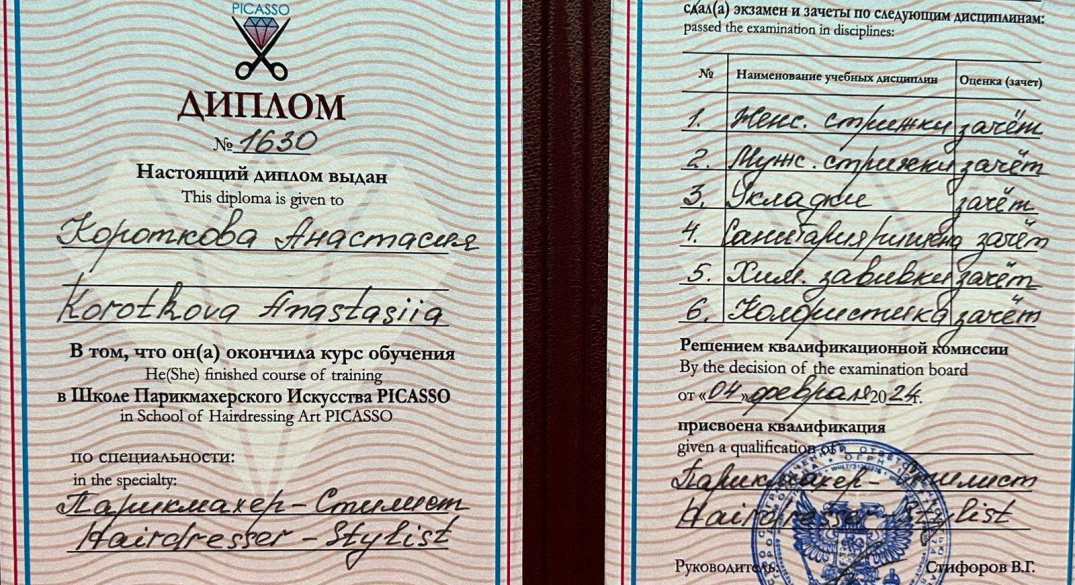 PICASSO
ДИПЛОМ
№ 1630
Настоящий диплом выдан
This diploma is given to
Короткова Анастасия
Korotkova Anastasiia
В том, что он(а) окончила курс обучения
He(She) finished course of training
в Школе Парикмахерского Искусства PICASSO
in School of Hairdressing Art PICASSO
по специальности:
in the specialty:
Парикмахер-Стилист
Hairdresser-Stylist
сдал(а) экзамен и зачеты по следующим дисциплинам:
passed the examination in disciplines:
№ Наименование учебных дисциплин Оценка (зачет)
1. Женс. стрижки зачёт
2. Муж. стрижки зачёт
3. Укладки зачёт
4. Санитария/гигиена зачёт
5. Хим. завивки зачёт
6. Колористика зачёт
Решением квалификационной комиссии
By the decision of the examination board
от «04» февраля 2024г.
присвоена квалификация
given a qualification of
Парикмахер-Стилист
Hairdresser-Stylist
Руководитель: Стифоров В.Г.